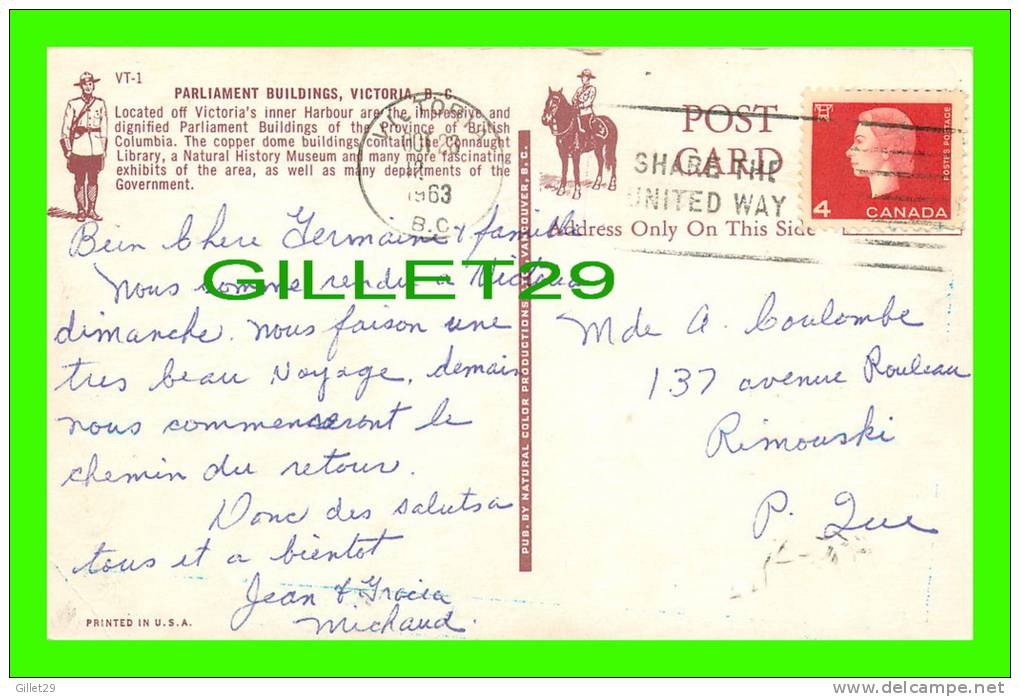 VT-1
PARLIAMENT BUILDINGS, VICTORIA, B. C.
Located off Victoria's inner Harbour are the impressive and
dignified Parliament Buildings of the Province of British
Columbia. The copper dome buildings contain the Connaught
Library, a Natural History Museum and many more fascinating
exhibits of the area, as well as many departments of the
Government.
VICTORIA
1963
B.C.
POST
CARD
SHARE THE
UNITED WAY
Address Only On This Side
POSTES POSTAGE
4 CANADA
Bien Chere Germaine & famille
Nous somme rendu a Victoria
dimanche. nous faison une
tres beau voyage, demain
nous commenceront le
chemin du retour.
Donc des saluts a
tous et a bientot
Jean & Gracia
Michaud.
PRINTED IN U.S.A.
PUB. BY NATURAL COLOR PRODUCTIONS VANCOUVER, B. C.
Mde A. Coulombe
137 avenue Rouleau
Rimouski
P. Que
GILLET29
Gillet29
http://www.delcampe.net